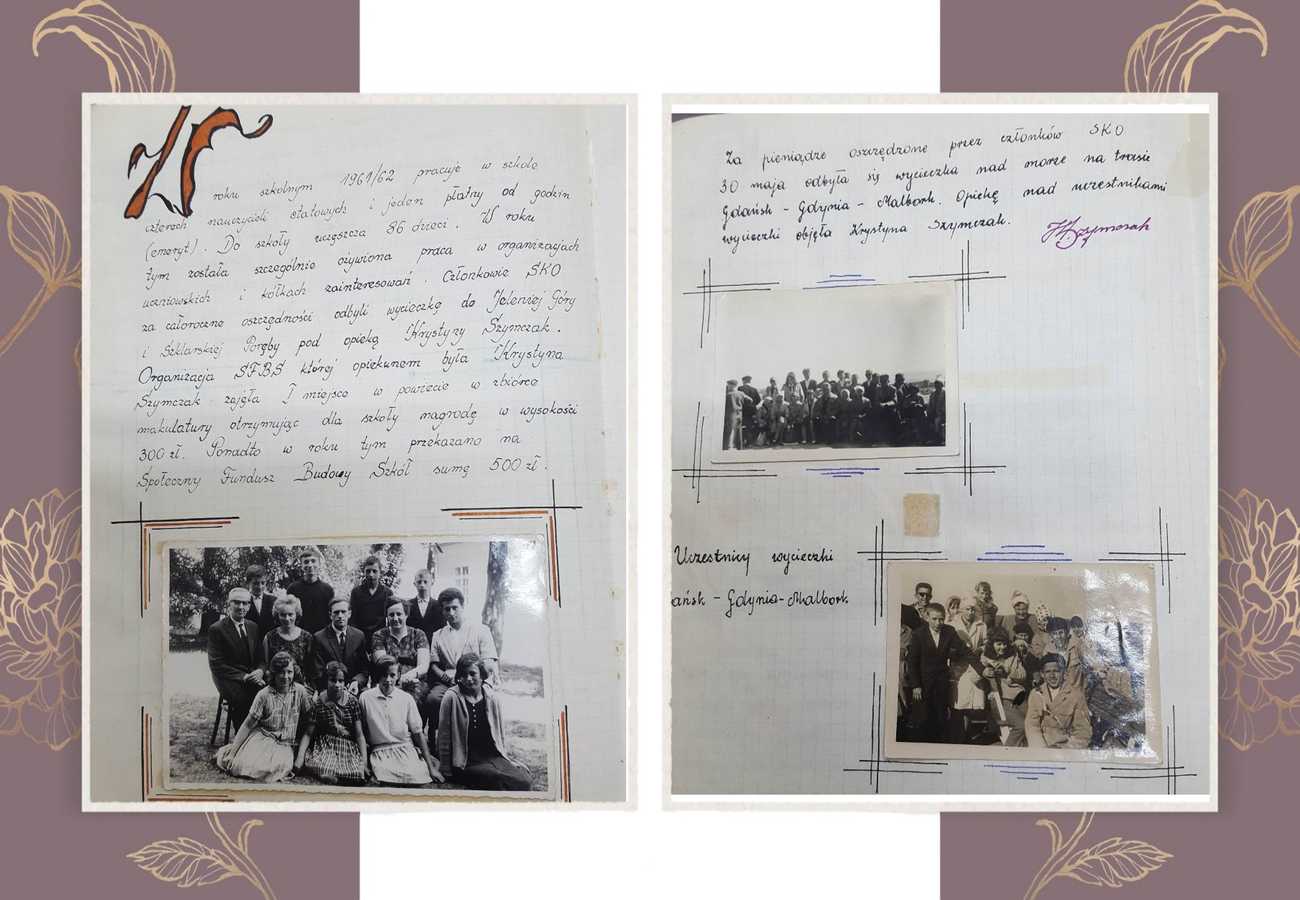 W roku szkolnym 1961/62 pracuje w szkole
czterech nauczycieli etatowych i jeden płatny od godzin
(emeryt). Do szkoły uczęszcza 86 dzieci. W roku
tym została szczególnie ożywiona praca w organizacjach
uczniowskich i kółkach zainteresowań. Członkowie SKO
za całoroczne oszczędności odbyli wycieczkę do Jeleniej Góry
i Szklarskiej Poręby pod opieką Krystyny Szymczak.
Organizacja SFBS której opiekunem była Krystyna
Szymczak zajęła I miejsce w powiecie w zbiórce
makulatury otrzymując dla szkoły nagrodę w wysokości
300 zł. Ponadto w roku tym przekazano na
Społeczny Fundusz Budowy Szkół sumę 500 zł.
Za pieniądze oszczędzone przez członków SKO
30 maja odbyła się wycieczka nad morze na trasie
Gdańsk - Gdynia - Malbork. Opiekę nad uczestnikami
wycieczki objęła Krystyna Szymczak.
HSzymczak
Uczestnicy wycieczki
ańsk - Gdynia - Malbork